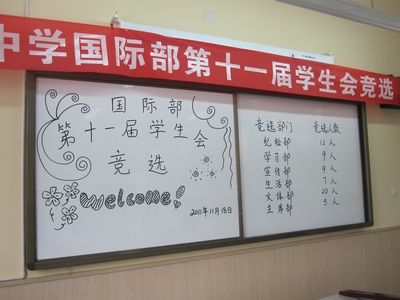 中学国际部第十一届学生会竞选
国际部
第十一届学生会
竞选
welcome!
2011年11月18日
竞选部门 竞选人数
纪检部 12人
学习部 9人
宣传部 9人
生活部 7人
文体部 20人
主席部 5人